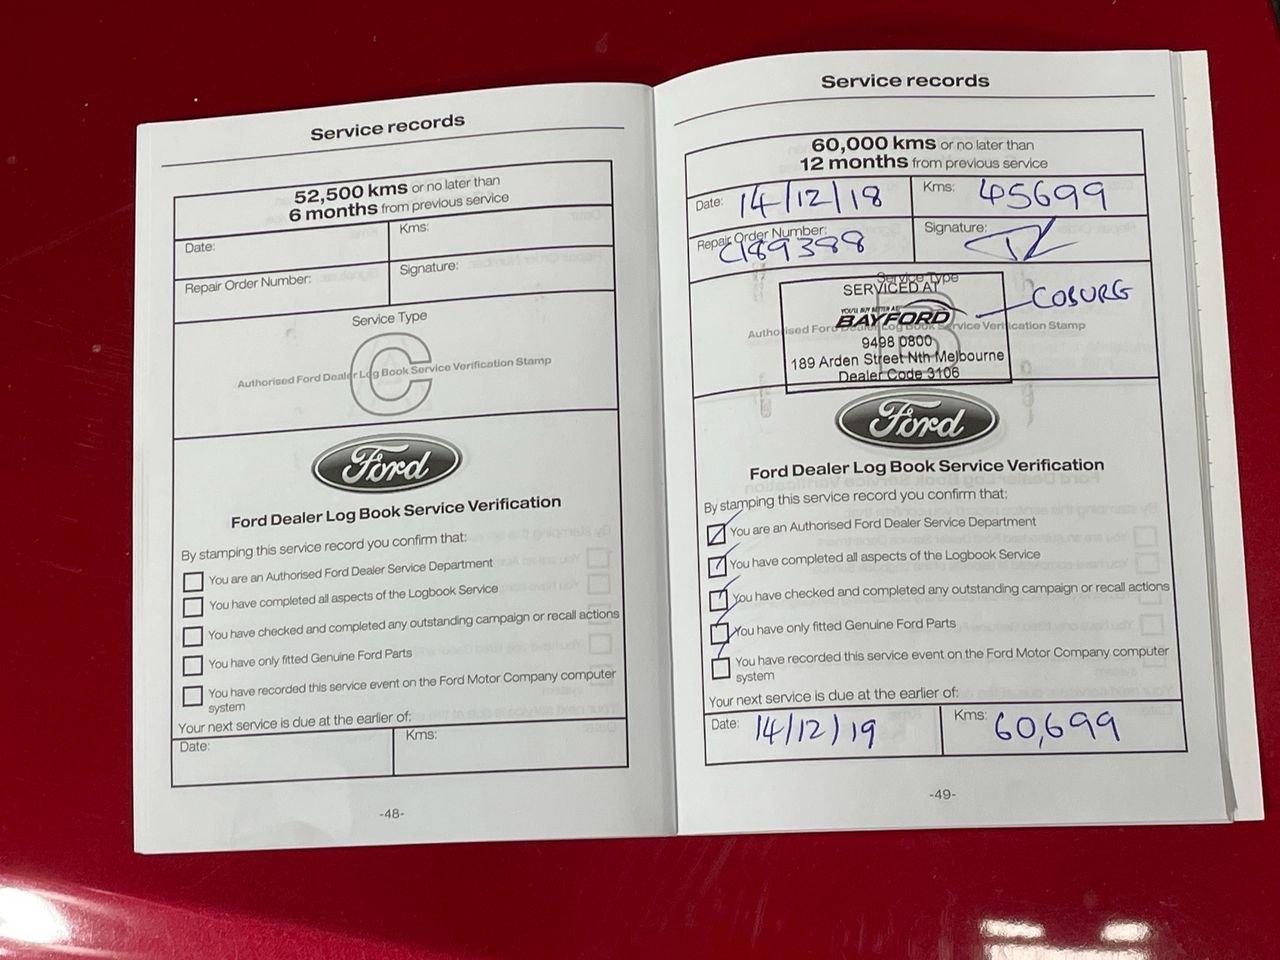 Service records
52,500 kms or no later than
6 months from previous service
Date:
Kms:
Repair Order Number:
Signature:
Service Type
C
Authorised Ford Dealer Log Book Service Verification Stamp
Ford
Ford Dealer Log Book Service Verification
By stamping this service record you confirm that:
You are an Authorised Ford Dealer Service Department
You have completed all aspects of the Logbook Service
You have checked and completed any outstanding campaign or recall actions
You have only fitted Genuine Ford Parts
You have recorded this service event on the Ford Motor Company computer
system
Your next service is due at the earlier of:
Date:
Kms:
-48-
Service records
60,000 kms or no later than
12 months from previous service
Date: 14/12/18
Kms: 45699
Repair Order Number:
C189388
Signature:
Service Type
SERVICED AT
COBURG
YOU'LL BUY BETTER AT
BAYFORD
B
Authorised Ford Dealer Log Book Service Verification Stamp
9498 0800
189 Arden Street Nth Melbourne
Dealer Code 3106
Ford
Ford Dealer Log Book Service Verification
By stamping this service record you confirm that:
You are an Authorised Ford Dealer Service Department
You have completed all aspects of the Logbook Service
You have checked and completed any outstanding campaign or recall actions
You have only fitted Genuine Ford Parts
You have recorded this service event on the Ford Motor Company computer
system
Your next service is due at the earlier of:
Date: 14/12/19
Kms: 60,699
-49-